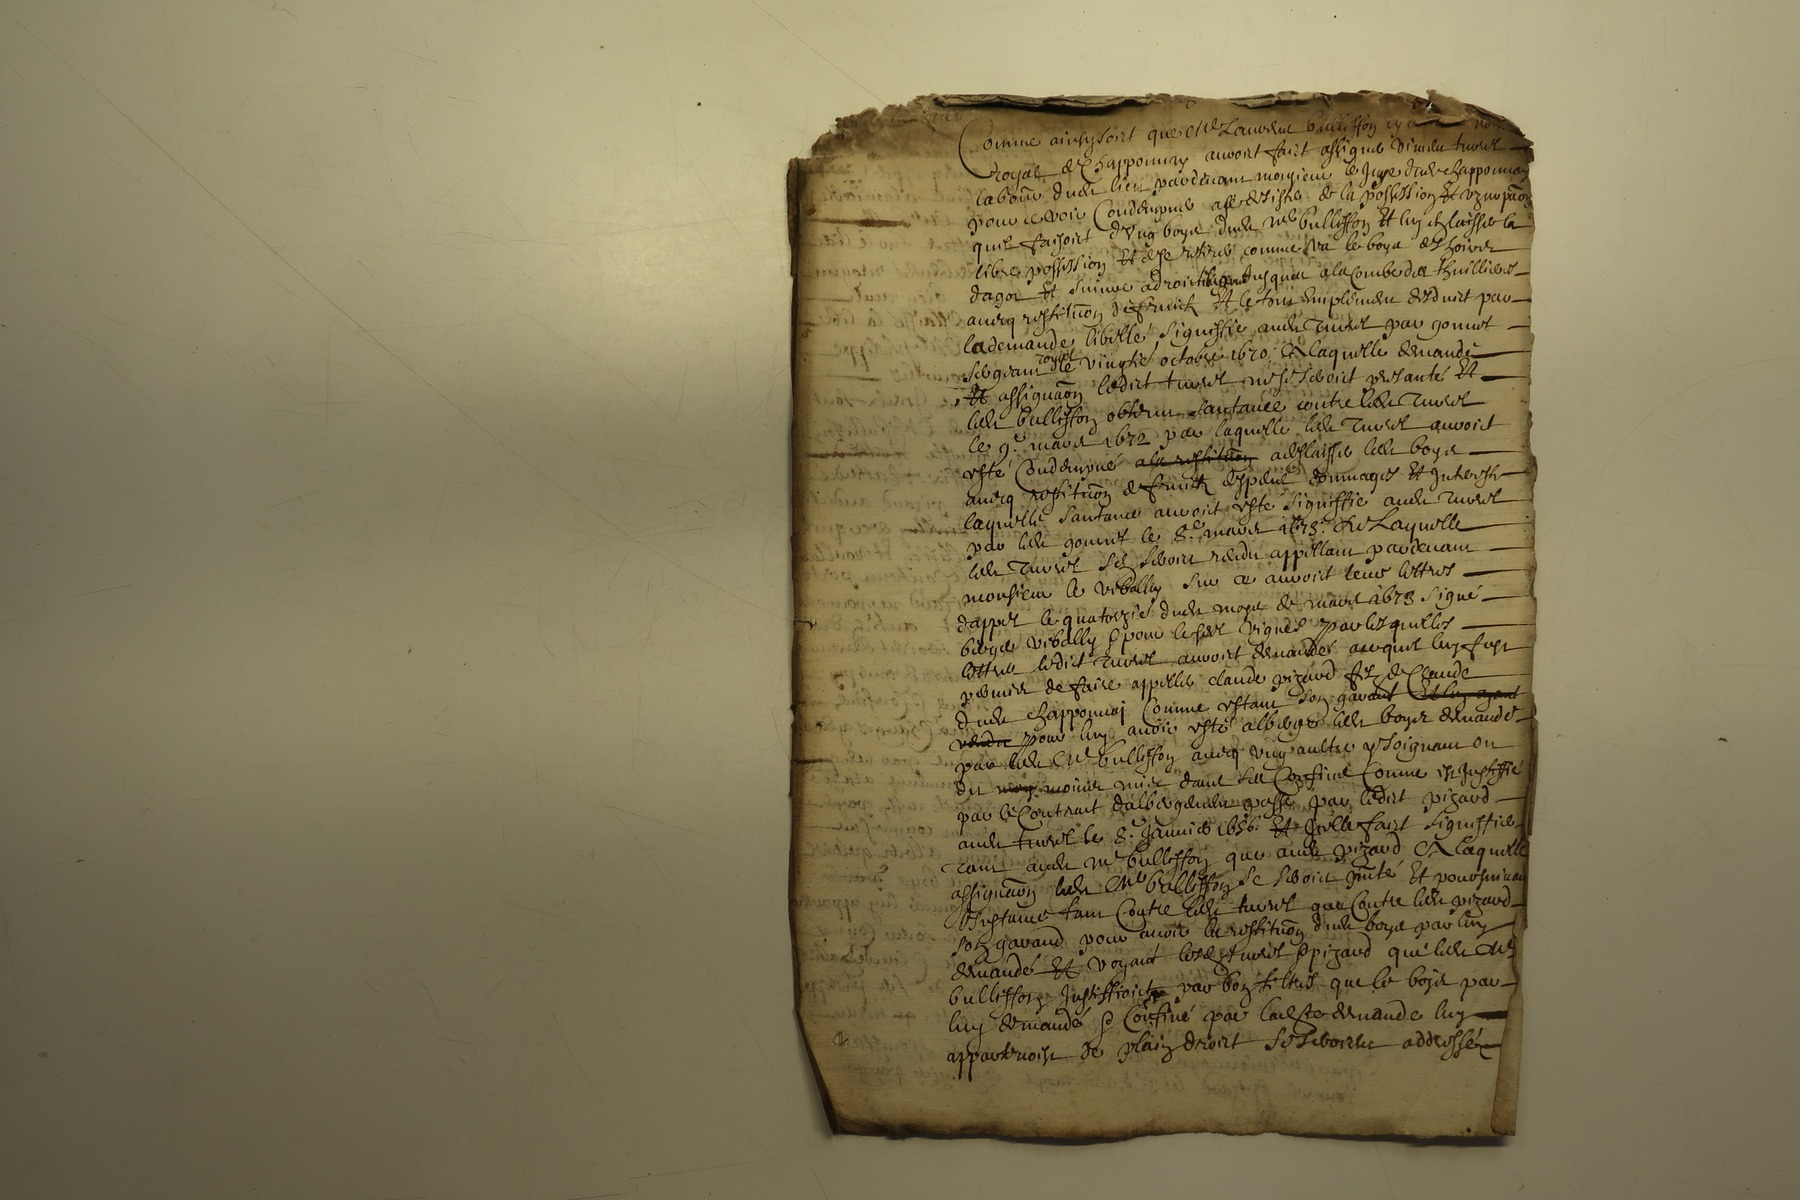 Comme ainsy soit que Me Laurent bullisson
royal de Chapponnay auroit faict assigner turrel
labour dudt lieu pardevant monsieur le Juge dudt chapponnay
pour ce voir Condempner a se desister de la possession Et
quil faisoict dung boys dudt Me bullisson Et luy delaisser la
libre possession Et comme va le boys
dagot Et suivre a droict Jusques a la Combe des thuilliers
avecq restituon de fruictz Et le tout emplement deduict par
la demande libellé signiffie audt Turrel par gonnet
sergent royal le vingtie octobre 1670 A laquelle demande
Et assignaon ledict turrel ne se seroict presanté Et
ledt bullisson obtenu santance contre ledt Turrel
le 9e mars 1672 par laquelle ledt Turrel auroict
esté Condempné a la restituon a deslaisser ledt boys
avecq restituon de fruictz despens dommages Et Interestz
laquelle santance auroict este signiffie audt Turrel
par ledt gonnet le 8e mars 1673 De Laquelle
ledt Turrel se seroict rendu appellant pardevant
monsieur le vibally sur ce auroict levé lettres
dappel le quatorzie dudt moys de mars 1673 signé
vibally pour lesdt Par lesquelles
lettres ledict Turrel auroict demandé a ce quil luy fust
permis de faire appeller claude pizard filz de Claude
dudt chapponnay Comme estant son garant Et luy ayant
vendu Pour luy avoir esté albergé ledt boys demandé
par ledt Me bullisson avecq ung aultre y Joignant ou
du moings mise dans ses Confins Comme est Justiffié
par le Contract dalbergement passé par ledict pizard
audt turrel le 8e Janvier 1656 Et Icelle faict signiffier
tant audt Me bullisson que audt pizard A laquelle
assignaon ledt Me bullisson se seroict Et poursuivant
Linstance tant Contre ledt turrel que Contre ledt pizard
son garand pour avoir la restituon dudt boys par luy
demandé Et voyant lesdt turrel & pizard que ledt Me
bullisson Justiffioict par bon tiltres que le boys par
luy demandé & Confiné par ladte demande luy
appartenoist de plain droict se seroient addressé